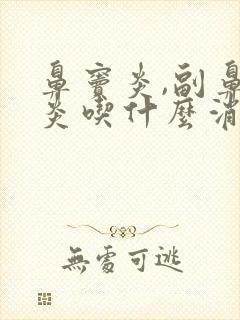 鼻竇炎,副鼻
炎喫什麼消
無處可逃